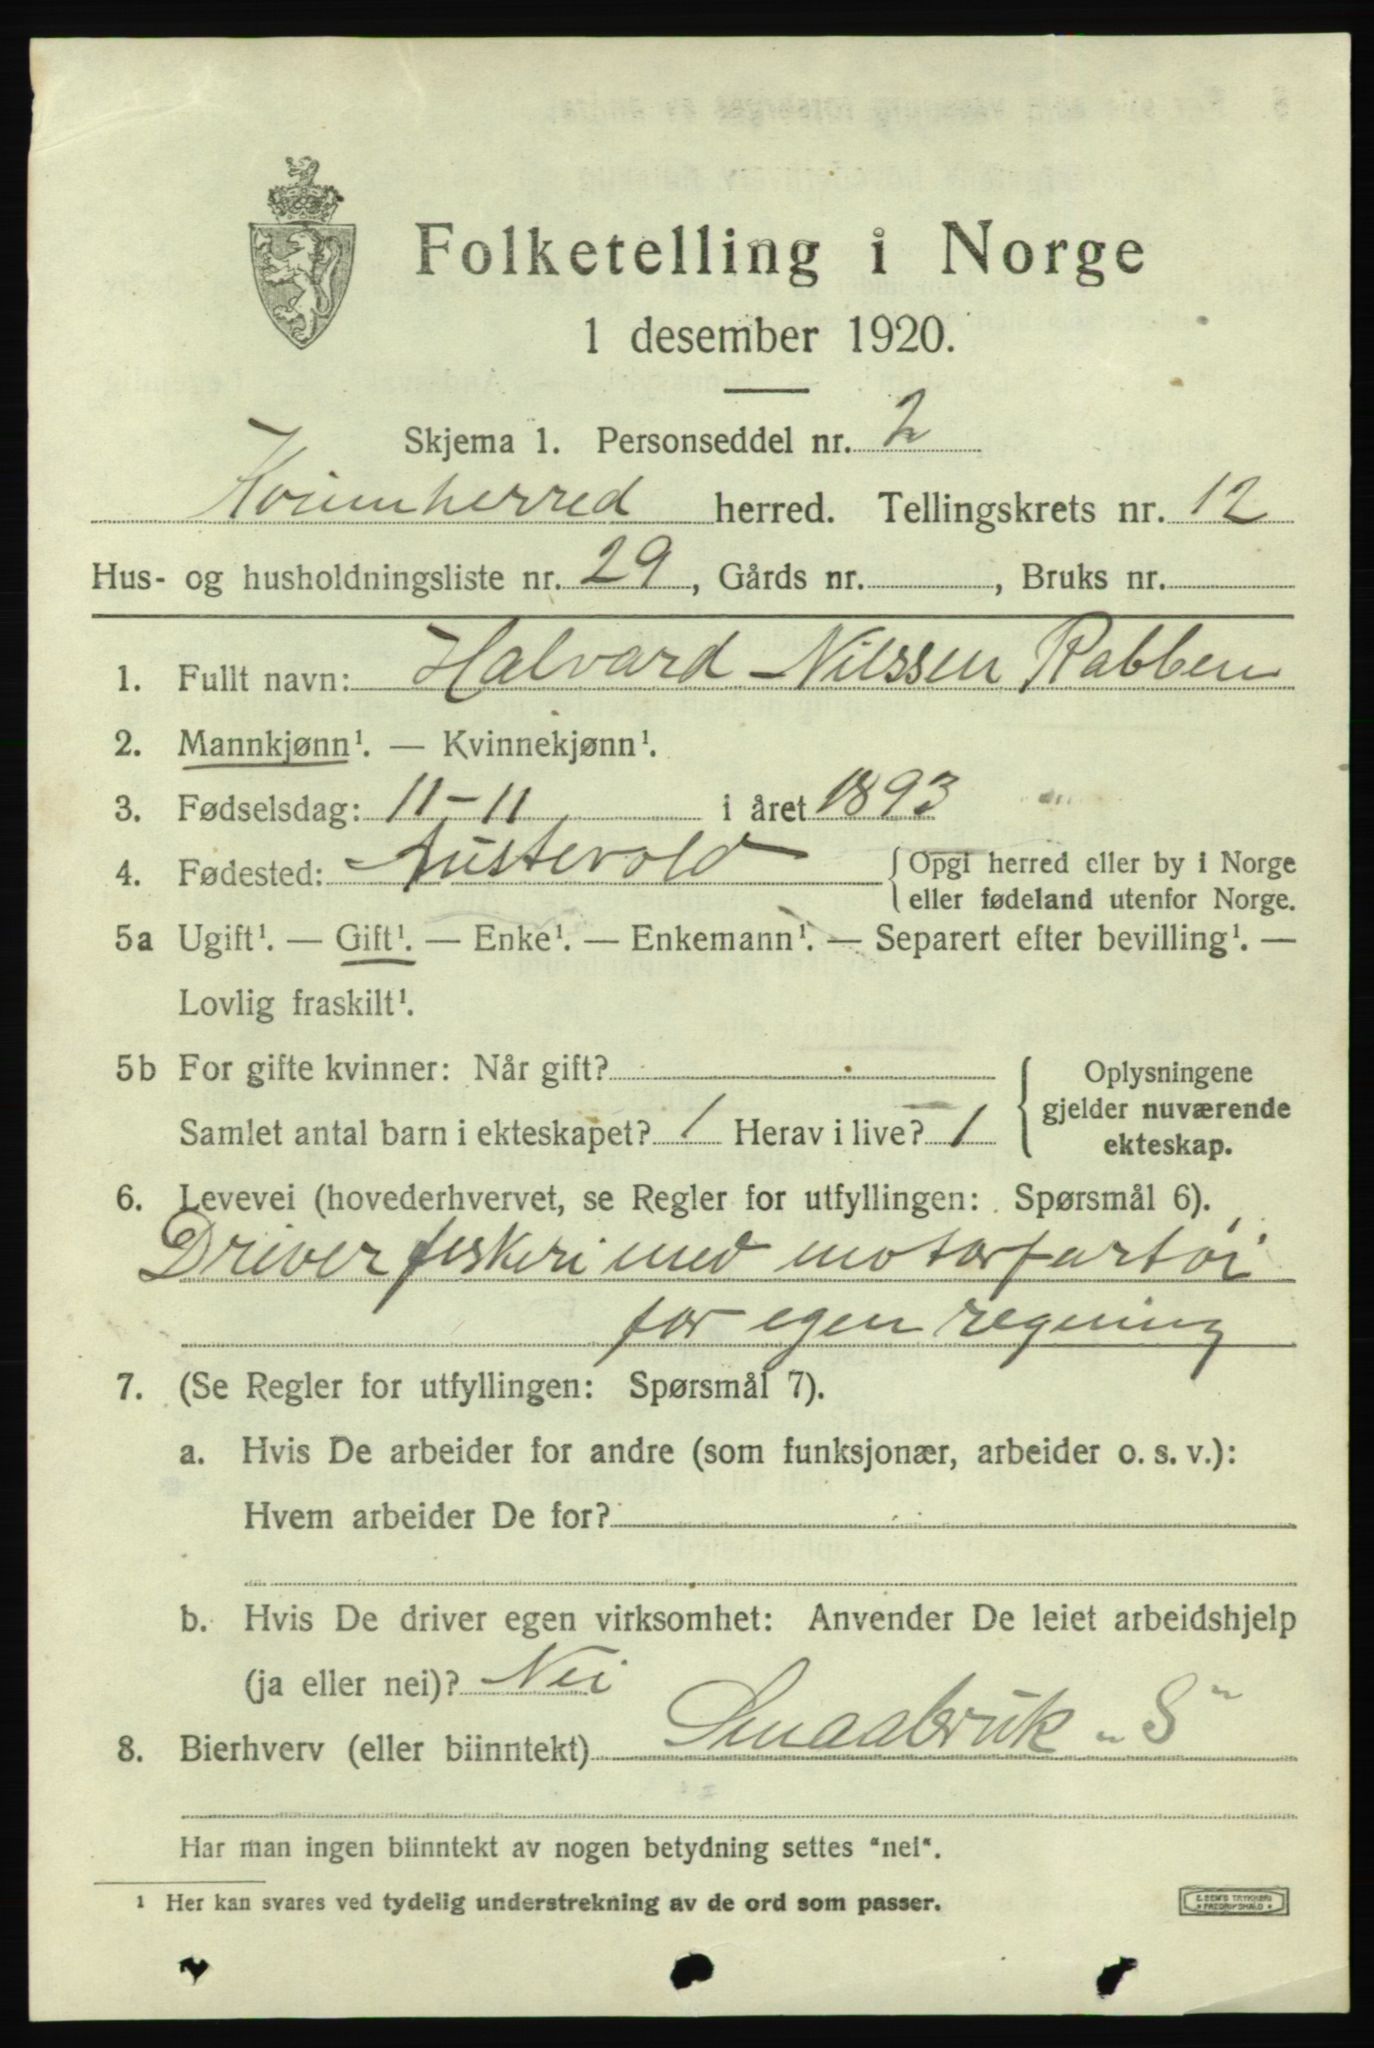 Folketelling i Norge
1 desember 1920.
Skjema 1. Personseddel nr. 2
Kvinnherred herred. Tellingskrets nr. 12
Hus- og husholdningsliste nr. 29, Gårds nr. , Bruks nr.
1. Fullt navn: Halvard Nilssen Rabben
2. Mannkjønn¹. — Kvinnekjønn¹.
3. Fødselsdag: 11-11 i året 1893
4. Fødested: Austevold { Opgi herred eller by i Norge
eller fødeland utenfor Norge.
5a Ugift¹. — Gift¹. — Enke¹. — Enkemann¹. — Separert efter bevilling¹. —
Lovlig fraskilt¹.
5b For gifte kvinner: Når gift?
Samlet antal barn i ekteskapet? 1 Herav i live? 1
{ Oplysningene
gjelder nuværende
ekteskap.
6. Levevei (hovederhvervet, se Regler for utfyllingen: Spørsmål 6).
Driver fiskeri med motorfartøi
for egen regning
7. (Se Regler for utfyllingen: Spørsmål 7).
a. Hvis De arbeider for andre (som funksjonær, arbeider o. s. v.):
Hvem arbeider De for?
b. Hvis De driver egen virksomhet: Anvender De leiet arbeidshjelp
(ja eller nei)? Nei
8. Bierhverv (eller biinntekt) Smaabruk „S"
Har man ingen biinntekt av nogen betydning settes "nei".
1 Her kan svares ved tydelig understrekning av de ord som passer.
E. SEM'S TRYKKERI
FREDRIKSHALD